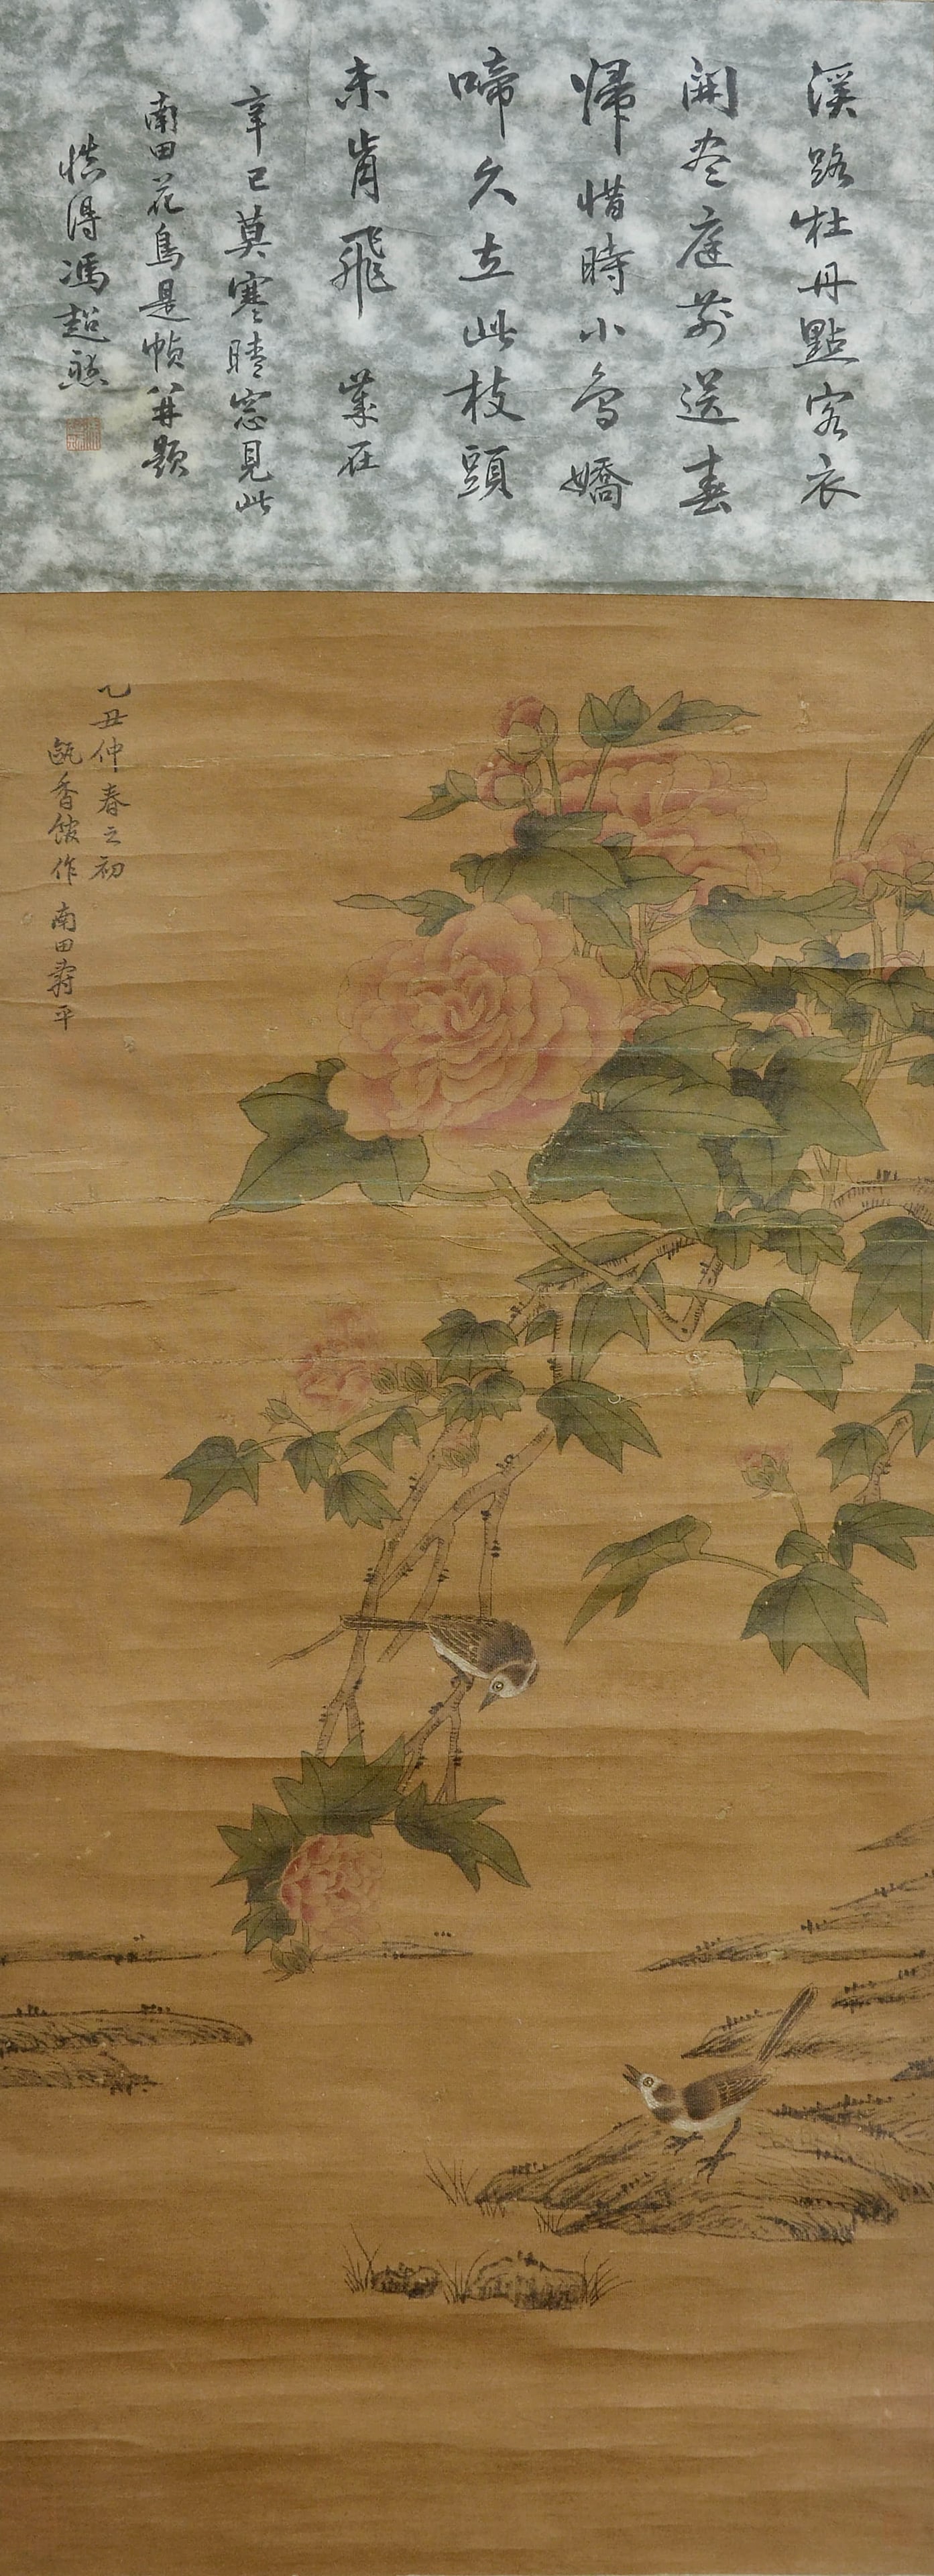 溪路牡丹點客衣
開盡庭前送春
歸惜時小鳥嬌
啼久立此枝頭
未肯飛 歲在
辛巳莫寒晴窓見此
南田花鳥是幀并題
慎得馮超然
乙丑仲春之初
甌香館作 南田壽平